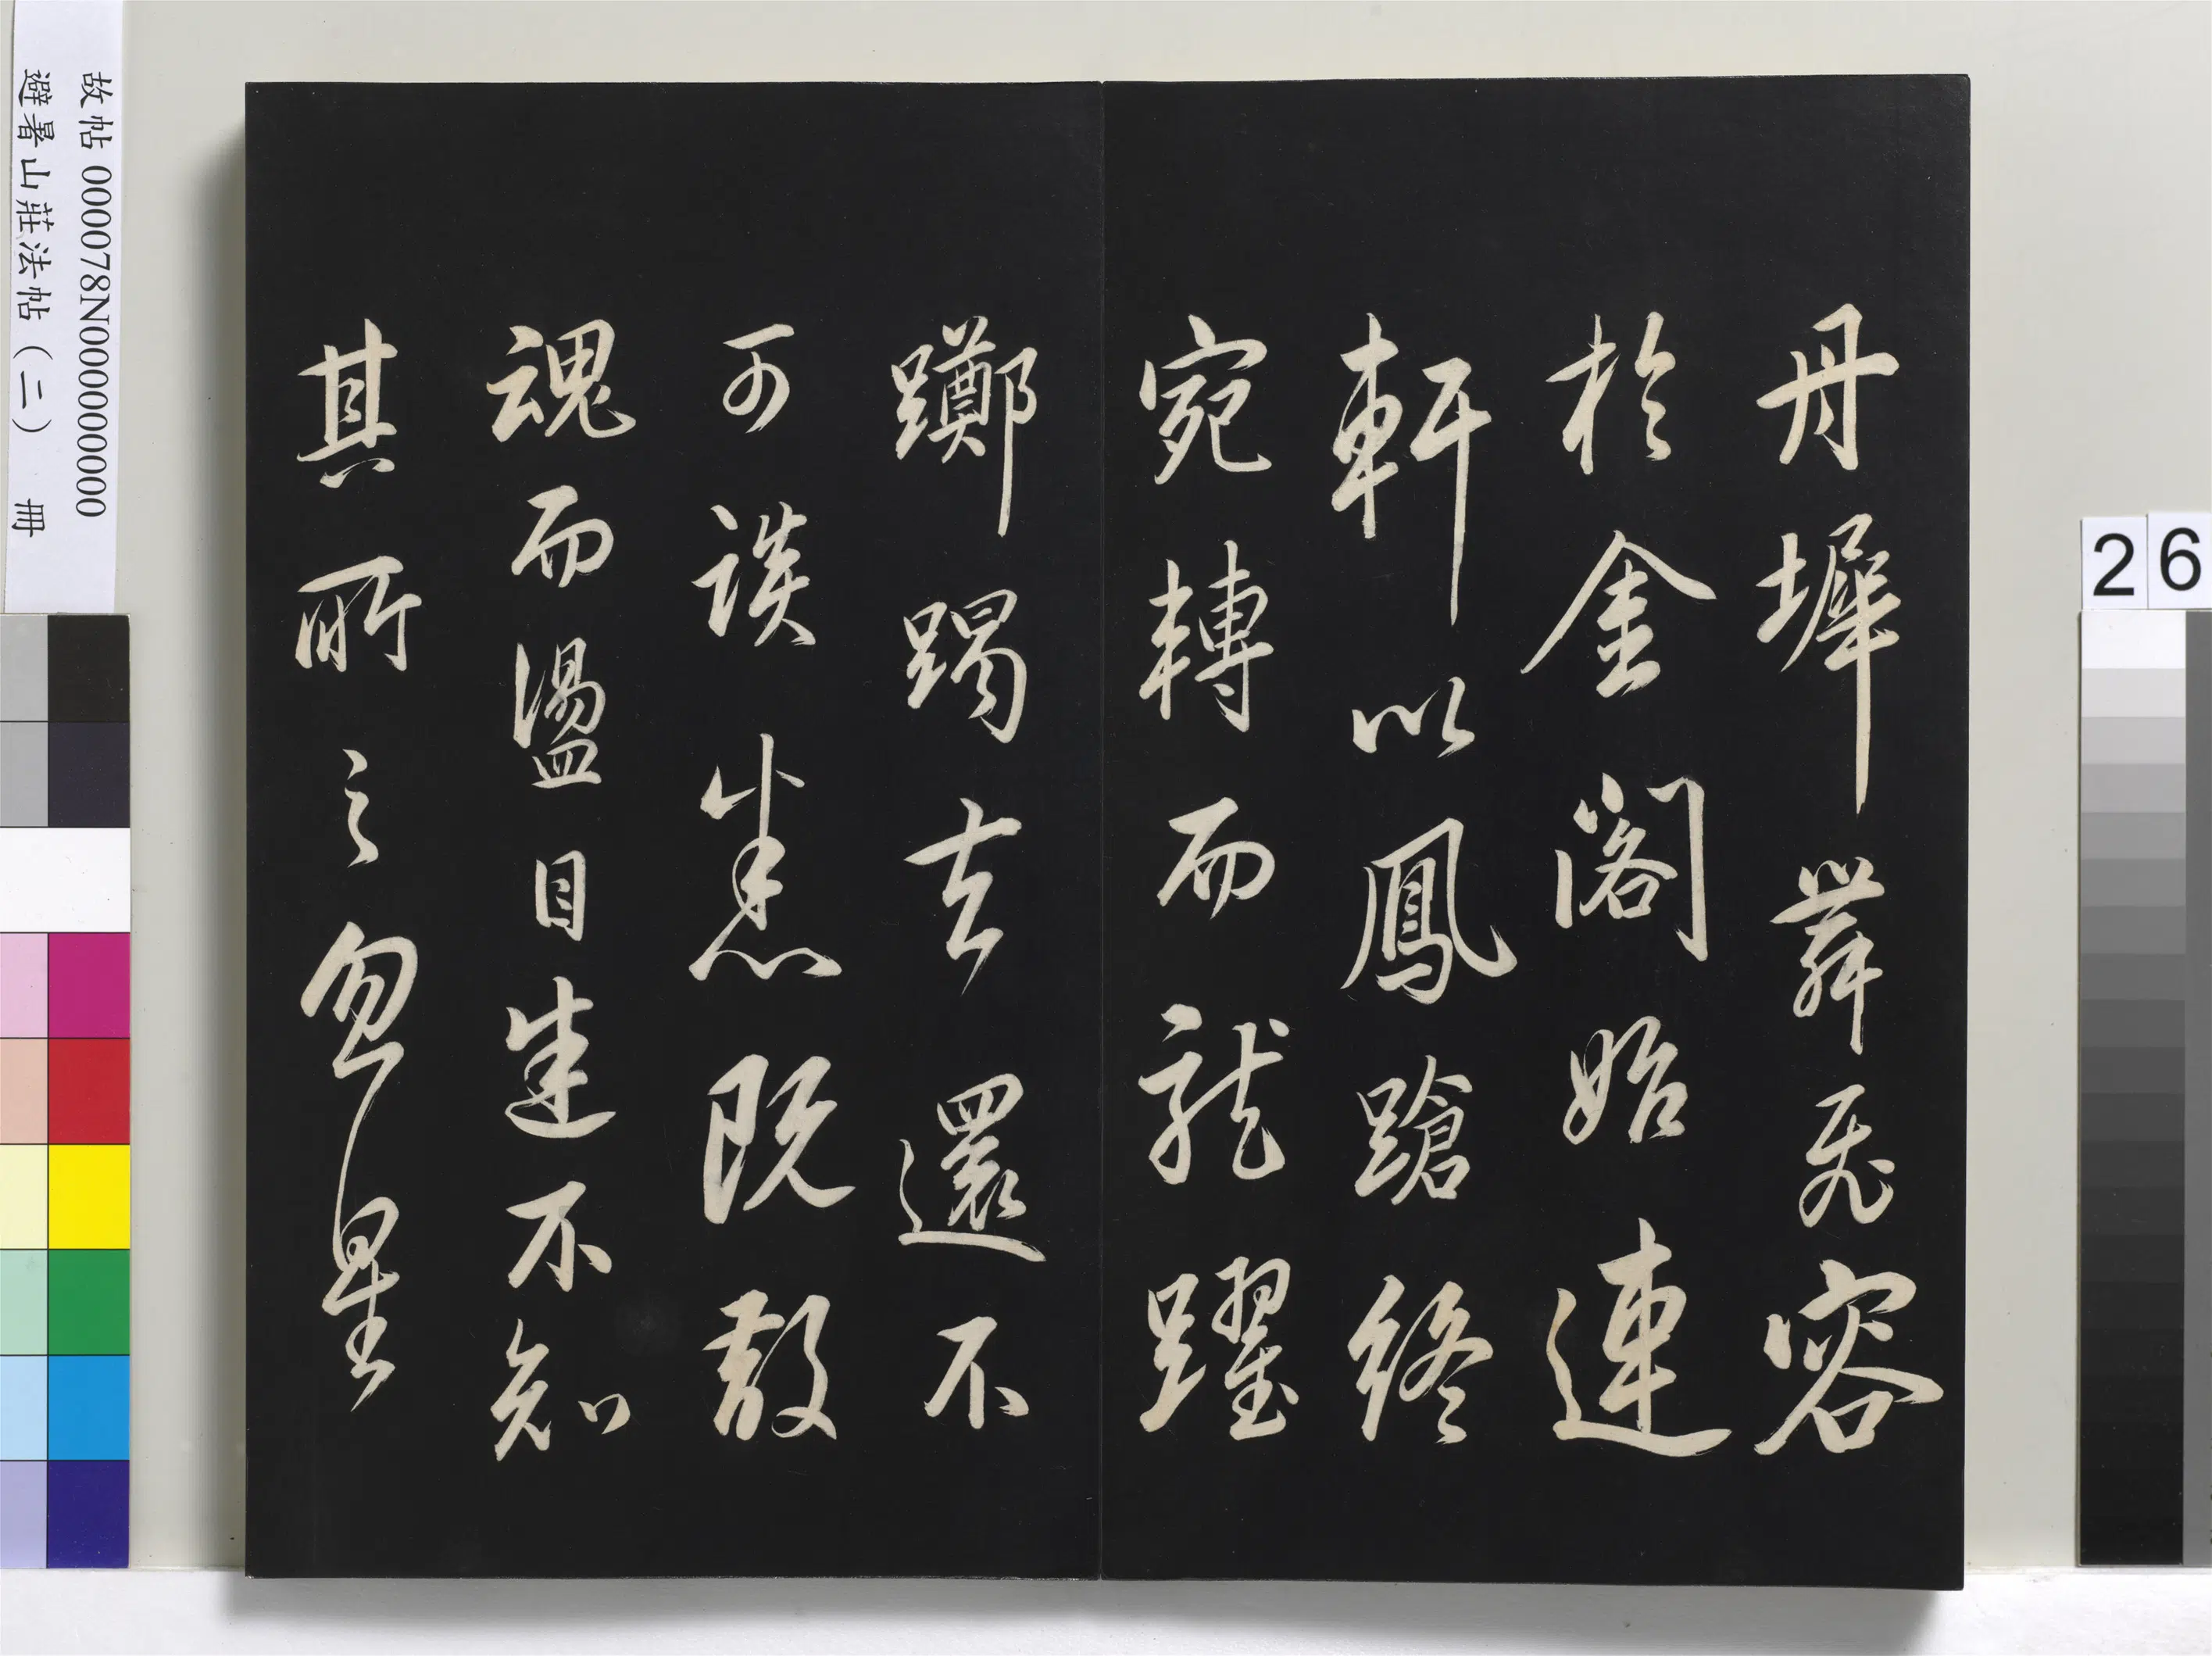 丹墀舞飛容
於金閣始連
軒以鳳蹌終
宛轉而龍躍
躑躅去還不
可談悉既散
魂而盪目迷不知
其所之忽星
故帖 000078N000000000
避暑山莊法帖（二） 冊
26